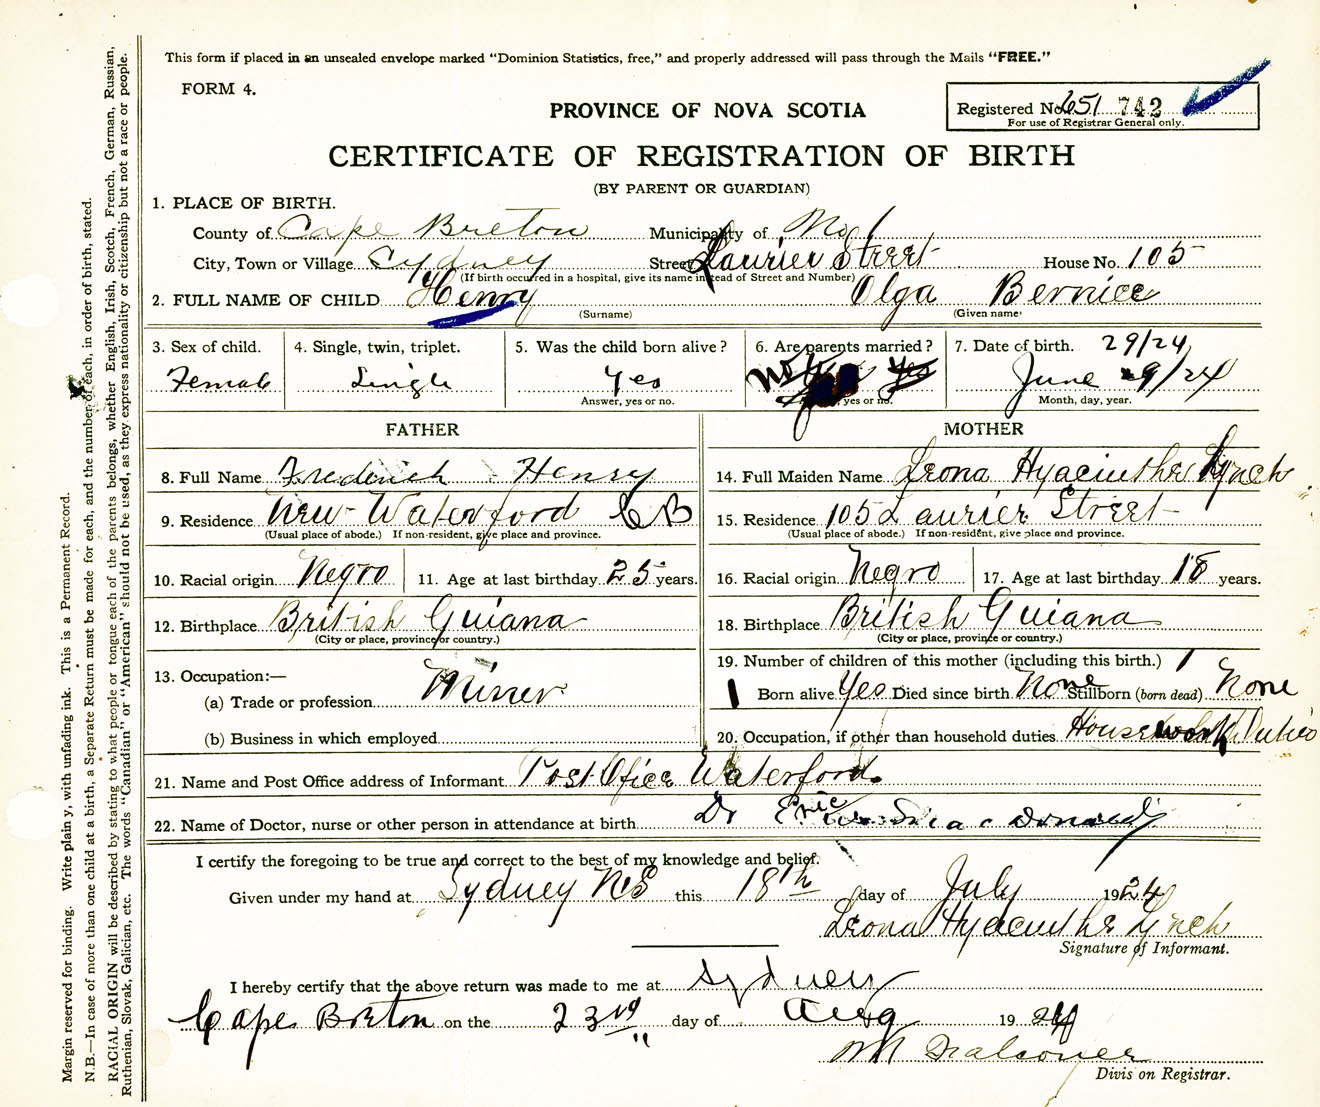 This form if placed in an unsealed envelope marked "Dominion Statistics, free," and properly addressed will pass through the Mails "FREE."
FORM 4.
PROVINCE OF NOVA SCOTIA
Registered No. 651 742
For use of Registrar General only.
CERTIFICATE OF REGISTRATION OF BIRTH
(BY PARENT OR GUARDIAN)
1. PLACE OF BIRTH.
County of Cape Breton Municipality of No 1
City, Town or Village Sydney Street Laurier Street House No. 105
(If birth occurred in a hospital, give its name instead of Street and Number)
2. FULL NAME OF CHILD Henry Olga Bernice
(Surname) (Given name)
3. Sex of child. 4. Single, twin, triplet. 5. Was the child born alive? 6. Are parents married? 7. Date of birth. 29/24
Female Single Yes Yes June 29/24
Answer, yes or no. yes or no. Month, day, year.
FATHER MOTHER
8. Full Name Frederick Henry 14. Full Maiden Name Leona Hyacinthe Lynch
9. Residence New Waterford CB 15. Residence 105 Laurier Street
(Usual place of abode.) If non-resident, give place and province. (Usual place of abode.) If non-resident, give place and province.
10. Racial origin Negro 11. Age at last birthday 25 years. 16. Racial origin Negro 17. Age at last birthday 18 years.
12. Birthplace British Guiana 18. Birthplace British Guiana
(City or place, province or country.) (City or place, province or country.)
13. Occupation:— 19. Number of children of this mother (including this birth.) 1
(a) Trade or profession Miner 1 Born alive Yes Died since birth None Stillborn (born dead) None
(b) Business in which employed 20. Occupation, if other than household duties Housework Duties
21. Name and Post Office address of Informant Post Ofice Waterford
22. Name of Doctor, nurse or other person in attendance at birth Dr Eric MacDonald
I certify the foregoing to be true and correct to the best of my knowledge and belief.
Given under my hand at Sydney NS this 18th day of July 1924
Leona Hyacinthe Lynch
Signature of Informant.
I hereby certify that the above return was made to me at Sydney
Cape Breton on the 23rd day of Aug 1924
Division Registrar.
Margin reserved for binding. Write plainly, with unfading ink. This is a Permanent Record.
N.B.—In case of more than one child at a birth, a Separate Return must be made for each, and the number of each, in order of birth, stated.
RACIAL ORIGIN will be described by stating to what people or tongue each of the parents belongs, whether English, Irish, Scotch, French, German, Russian,
Ruthenian, Slovak, Galician, etc. The words "Canadian" or "American" should not be used, as they express nationality or citizenship but not a race or people.